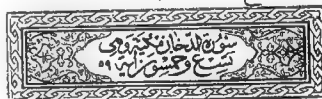 سورة الدخان مكية وهي
تسع وخمسون اية ٥٩